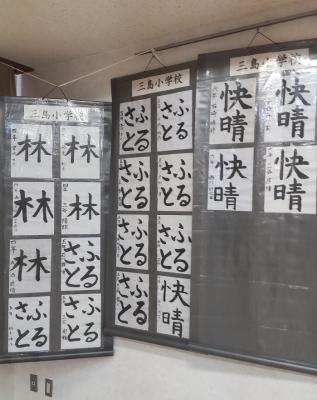 三島小学校
林
林
林
林
林
ふる
さと
ふる
さと
ふる
さと
三島小学校
ふる
さと
ふる
さと
ふる
さと
ふる
さと
ふる
さと
ふる
さと
快晴
ふる
さと
三島小学校
快晴
快晴
快晴
快晴